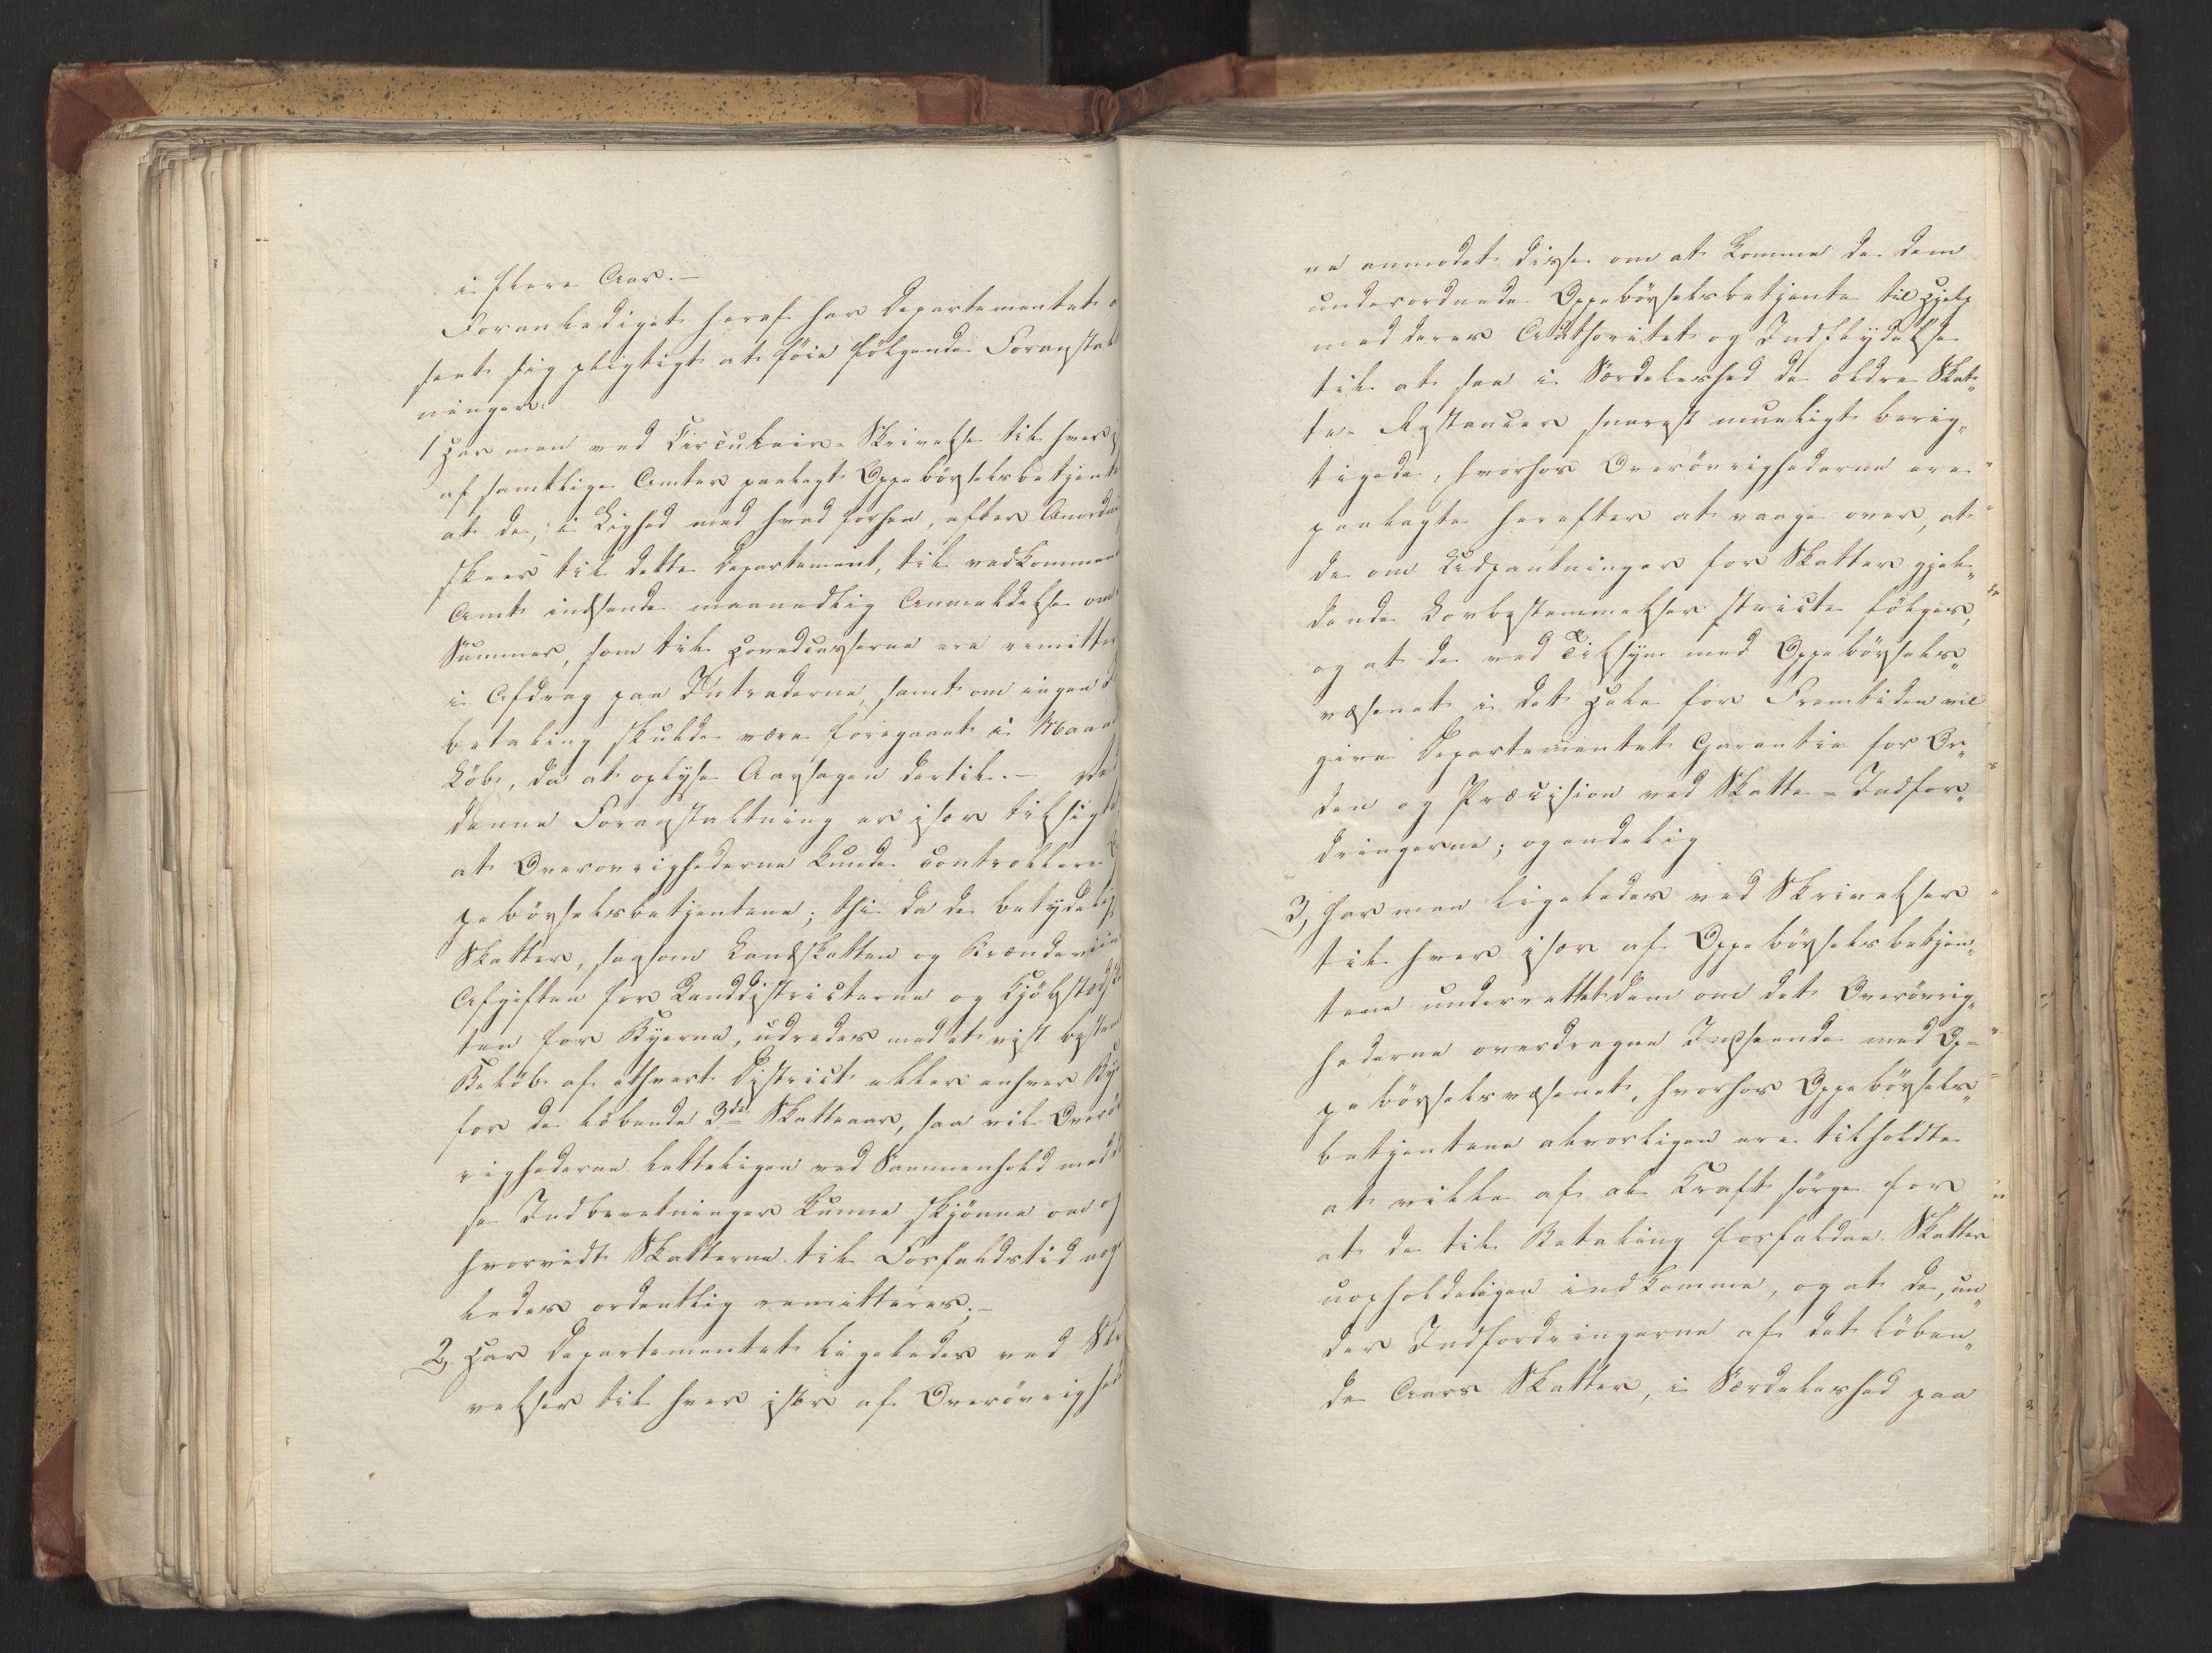 i flere Aar. —
Foranlediget heraf har Departementet
seet sig pligtigt at föie fölgende Foranstal
ninger:
1 Har man ved Circulair-Skrivelse til hver
af samtlige Amter paalagt Oppebörselsbetjente
at de, i Lighed med hvad forhen, efter Anordni
skeer til dette Departement, til vedkommen
Amt indsende maanedlig Anmeldelse om
Summer, som til Hovedcasserne ere remitter
i Afdrag paa Intraderne, samt om ingen
betaling skulde være foregaaet i Maane
Löb, da at oplyse Aarsagen dertil. — Ved
denne Foranstaltning er især tilsigtet
at Overovrighederne kunde controllere
pebörselsbetjentene; thi da de betydelig
Skatter, saasom Landskatten og Brændeviin
Afgiften for Landdistricterne og Kjöbstadska
ten for Byerne, udredes med et vist bestem
Belöb af ethvert District eller enhver By
for de löbende 3de Skatteaar, saa vil Overöv
righederne letteligen ved Sammenhold med di
se Indberetninger kunne skjönne om og
hvorvidt Skatterne til Forfaldstid nog
ledes ordentlig remitteres; —
2, Har Departementet ligeledes ved Skri
velser til hver især af Overövrighed
ne anmodet disse om at komme de dem
underordnede Oppebörselsbetjente til Hjelp
med deres Authoritet og Indflydelse
til at faa i Særdeleshed de ældre Skat„
te-Restancer snarest mueligt berig„
tigede, hvorhos Overövrighederne ere
paalagte herefter at vaage over, at
de om Udpantninger for Skatter gjel„
dende Lovbestemmelser stricte fölges,
og at de ved Tilsyn med Oppebörsels„
væsenet i det Hele for Fremtiden vil
give Departementet Garantie for Or„
den og Præcision ved Skatte-Indfor„
dringerne; og endelig
3, har man ligeledes ved Skrivelser
til hver især af Oppebörselsbetjen„
tene underrettet dem om det Overövrig„
hederne overdragne Indseende med Op=
pebörselsvæsenet, hvorhos Oppebörsels„
betjentene alvorligen ere tilholdte
at ville af al Kraft sörge for
at de til Betaling forfaldne Skatter
uopholdeligen indkomme, og at de, un„
der Indfordringerne af det löben„
de Aars Skatter, i Særdeleshed paa